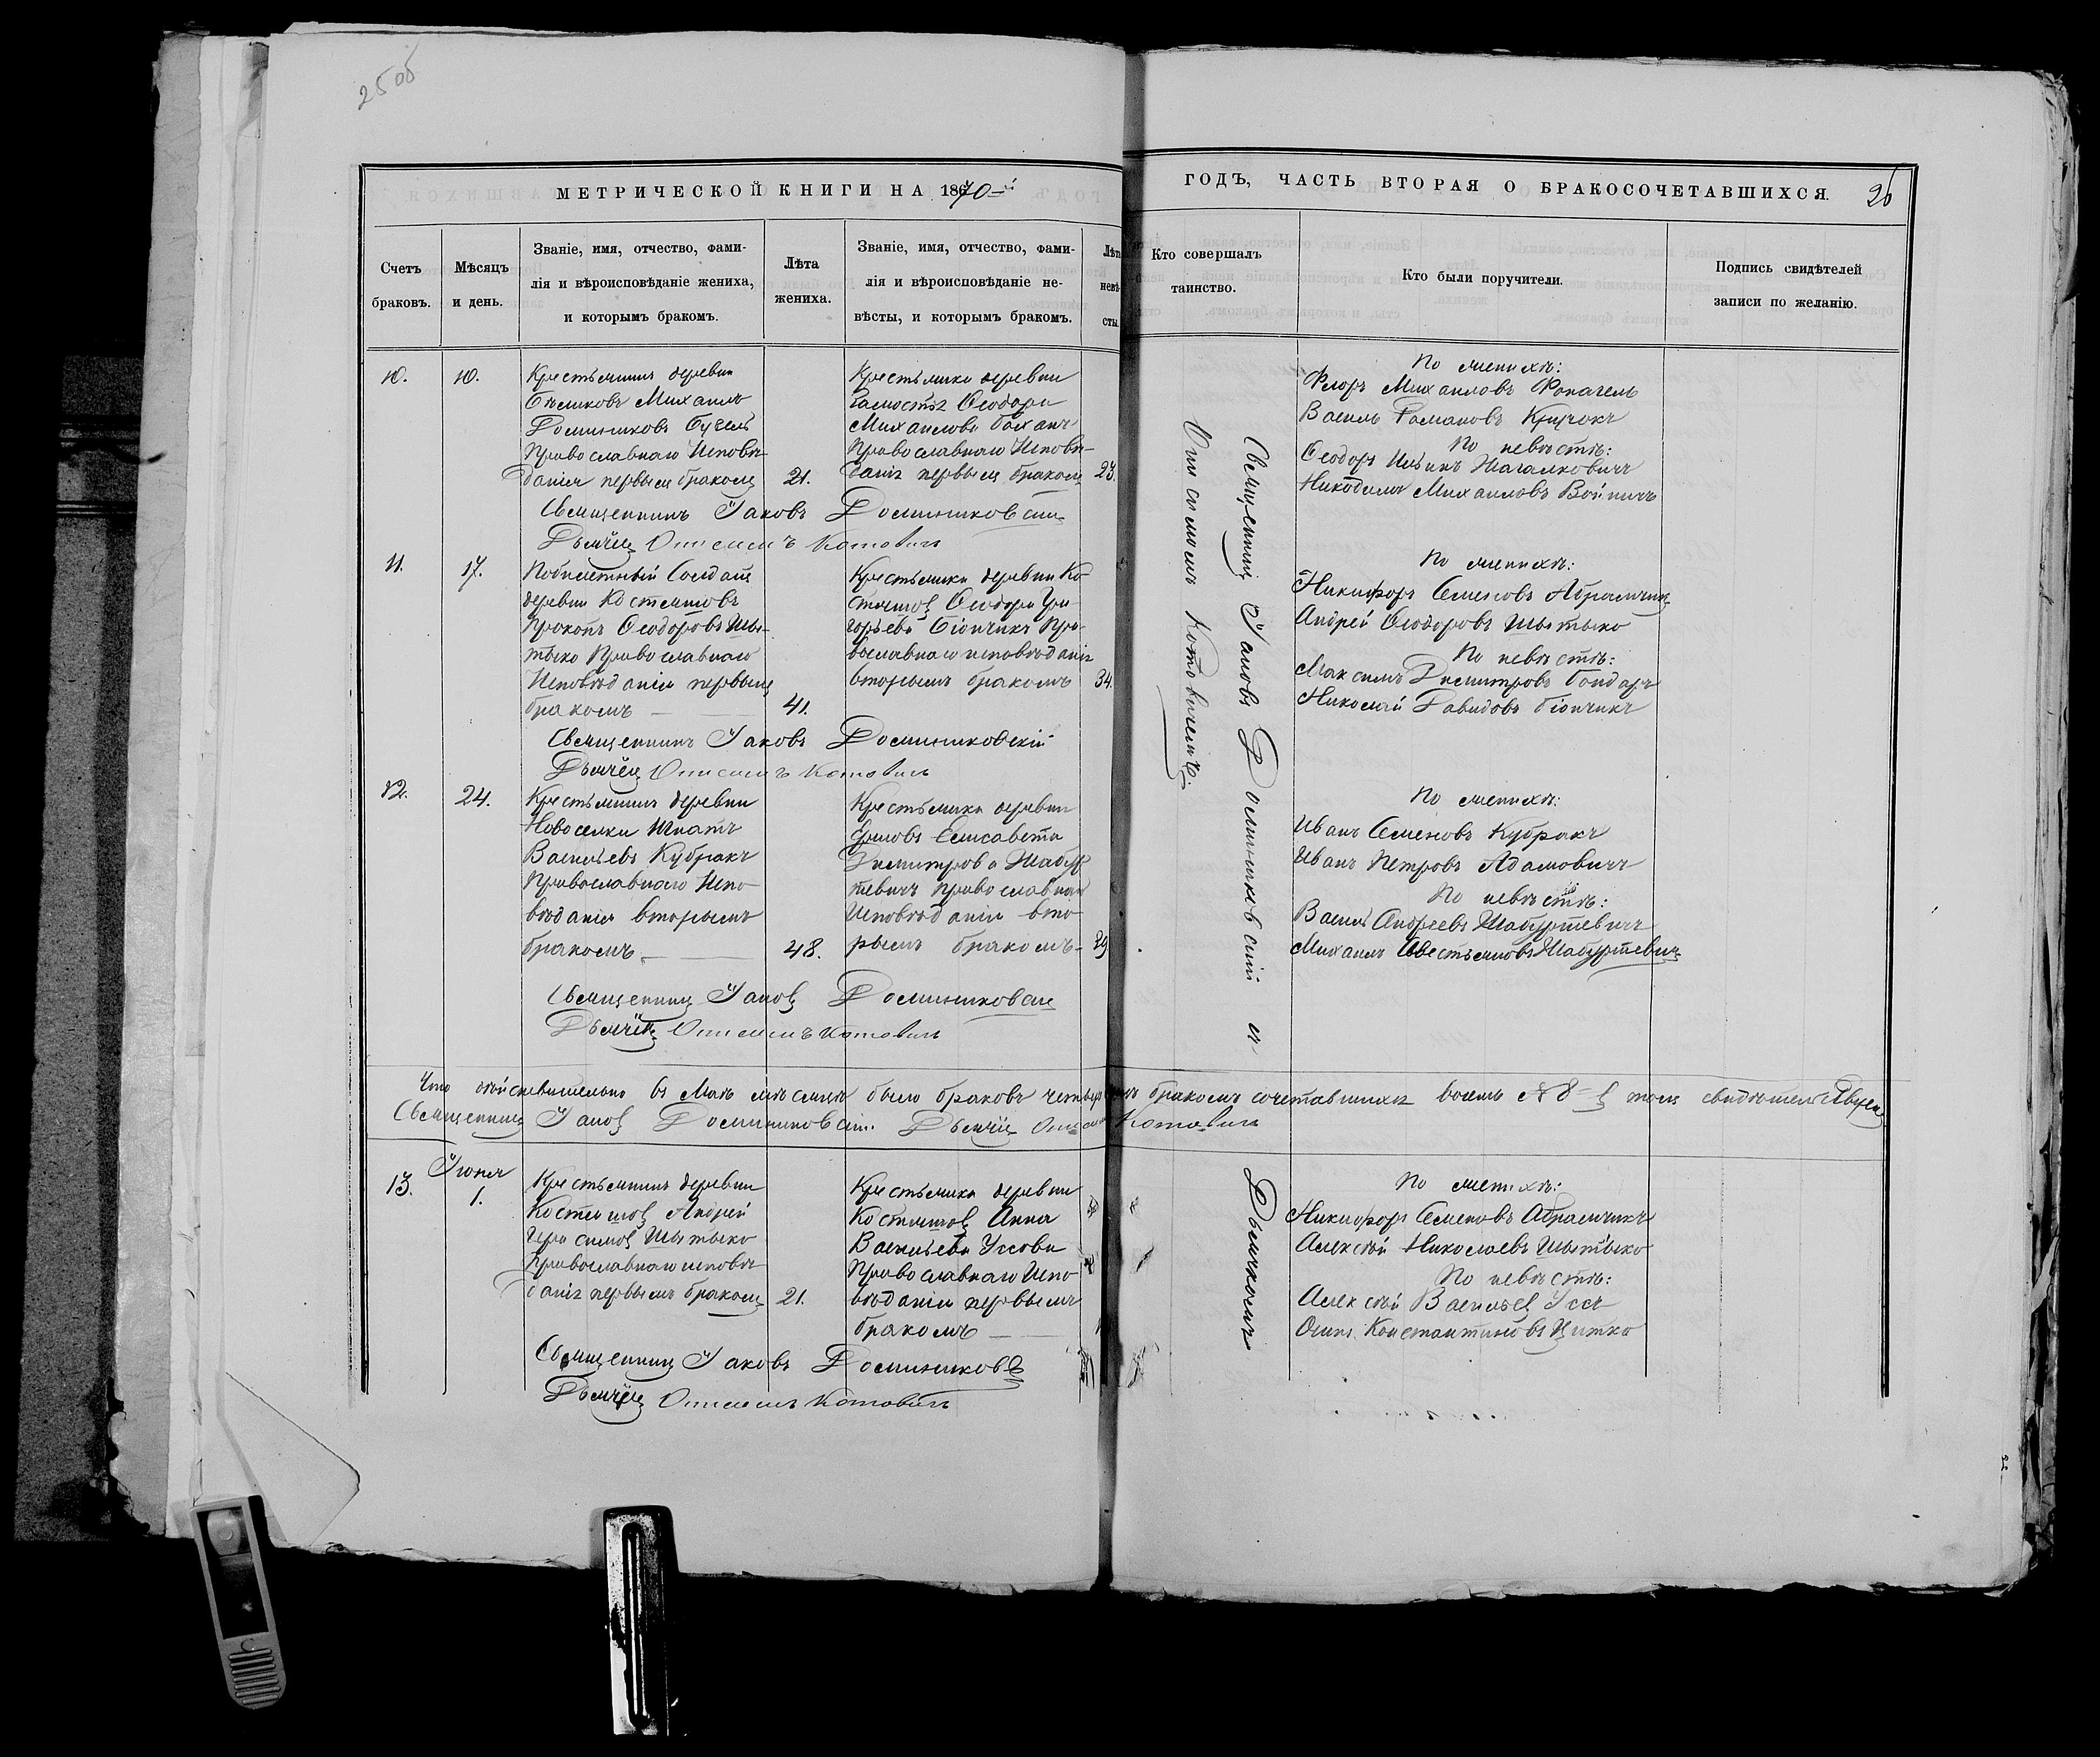 25об
МЕТРИЧЕСКОЙ КНИГИ НА 1870-й
ГОДЪ, ЧАСТЬ ВТОРАЯ О БРАКОСОЧЕТАВШИХСЯ. 26
Счетъ браковъ.
Мѣсяцъ и день.
Званіе, имя, отчество, фами-
лія и вѣроисповѣданіе жениха,
и которымъ бракомъ.
Лѣта
жениха.
Званіе, имя, отчество, фами-
лія и вѣроисповѣданіе не-
вѣсты, и которымъ бракомъ.
Лѣта
невѣ-
сты.
Кто совершалъ
таинство.
Кто были поручители.
Подпись свидѣтелей
записи по желанію.
10.
10.
Крестьянинъ деревни
Михаилъ
Доминиковъ
Православнаго Исповѣ-
данія первымъ бракомъ
21.
Крестьянка деревни
Ѳеодора
Михаилова
Православнаго Исповѣ-
данія первымъ бракомъ
23.
По женихѣ:
Флоръ Михаиловъ
Василь Романовъ Кручокъ
По невѣстѣ:
Ѳеодоръ Ильинъ
Никодимъ Михаиловъ Войничъ
Священникъ Іаковъ Доминиковскій
Дьячекъ Онисимъ Котовичъ
Священникъ Іаковъ Доминиковскій съ
Дьячкомъ
Онисимомъ Котовичемъ.
11.
17.
Побилетный Солдатъ
деревни Костешовъ
Прокопъ Ѳеодоровъ Шы-
тько Православнаго
Исповѣданія первымъ
бракомъ
41.
Крестьянка деревни Ко-
стешовъ Ѳеодора Гри-
горьева Біончикъ Пра-
вославнаго исповѣданія
вторымъ бракомъ
34.
По женихѣ:
Никифоръ Семеновъ Абрамчикъ
Андрей Ѳеодоровъ Шытько
По невѣстѣ:
Максимъ Димитровъ Бондарь
Николай Давидовъ Біончикъ
Священникъ Іаковъ Доминиковскій
Дьячекъ Онисимъ Котовичъ
12.
24.
Крестьянинъ деревни
Новоселки Игнатъ
Васильевъ Кубракъ
Православнаго Испо-
вѣданія вторымъ
бракомъ
48.
Крестьянка деревни
Елисавета
Димитрова
Православнаго
Исповѣданія вто-
рымъ бракомъ
29
По женихѣ:
Иванъ Семеновъ Кубракъ
Иванъ Петровъ Адамовичъ
По невѣстѣ:
Василь Андреевъ
Михаилъ
Священникъ Іаковъ Доминиковскій
Дьячекъ Онисимъ Котовичъ
Что дѣйствительно въ Маѣ мѣсяцѣ было браковъ четыре бракомъ сочетавшихся восемь № 8 въ томъ свидѣтельствуемъ
Священникъ Іаковъ Доминиковскій. Дьячекъ Онисимъ Котовичъ
13.
Іюня
1.
Крестьянинъ деревни
Костешовъ Андрей
Герасимовъ Шытько
Православнаго исповѣ-
данія первымъ бракомъ
21.
Крестьянка деревни
Костешовъ Анна
Васильева Уссова
Православнаго Испо-
вѣданія первымъ
бракомъ
По женихѣ:
Никифоръ Семеновъ Абрамчикъ
Алексѣй Николаевъ Шытько
По невѣстѣ:
Алексѣй Васильевъ Уссъ
Осипъ Константиновъ Цитко
Священникъ Іаковъ Доминиковскій
Дьячекъ Онисимъ Котовичъ